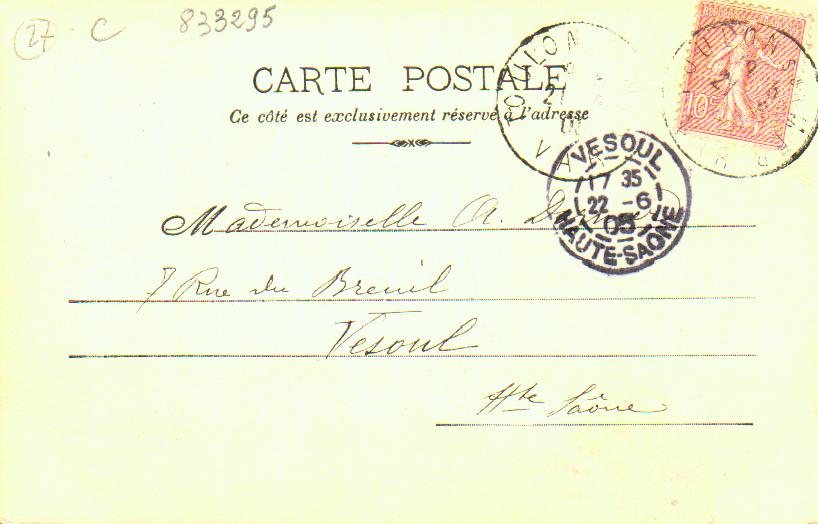 27 C 833295
CARTE POSTALE
Ce côté est exclusivement réservé à l'adresse
TOULON
VAR
VESOUL
17 35
22 - 6
05
HAUTE-SAONE
10c
Mademoiselle A.
7 Rue du Breuil
Vesoul
Hte Saône